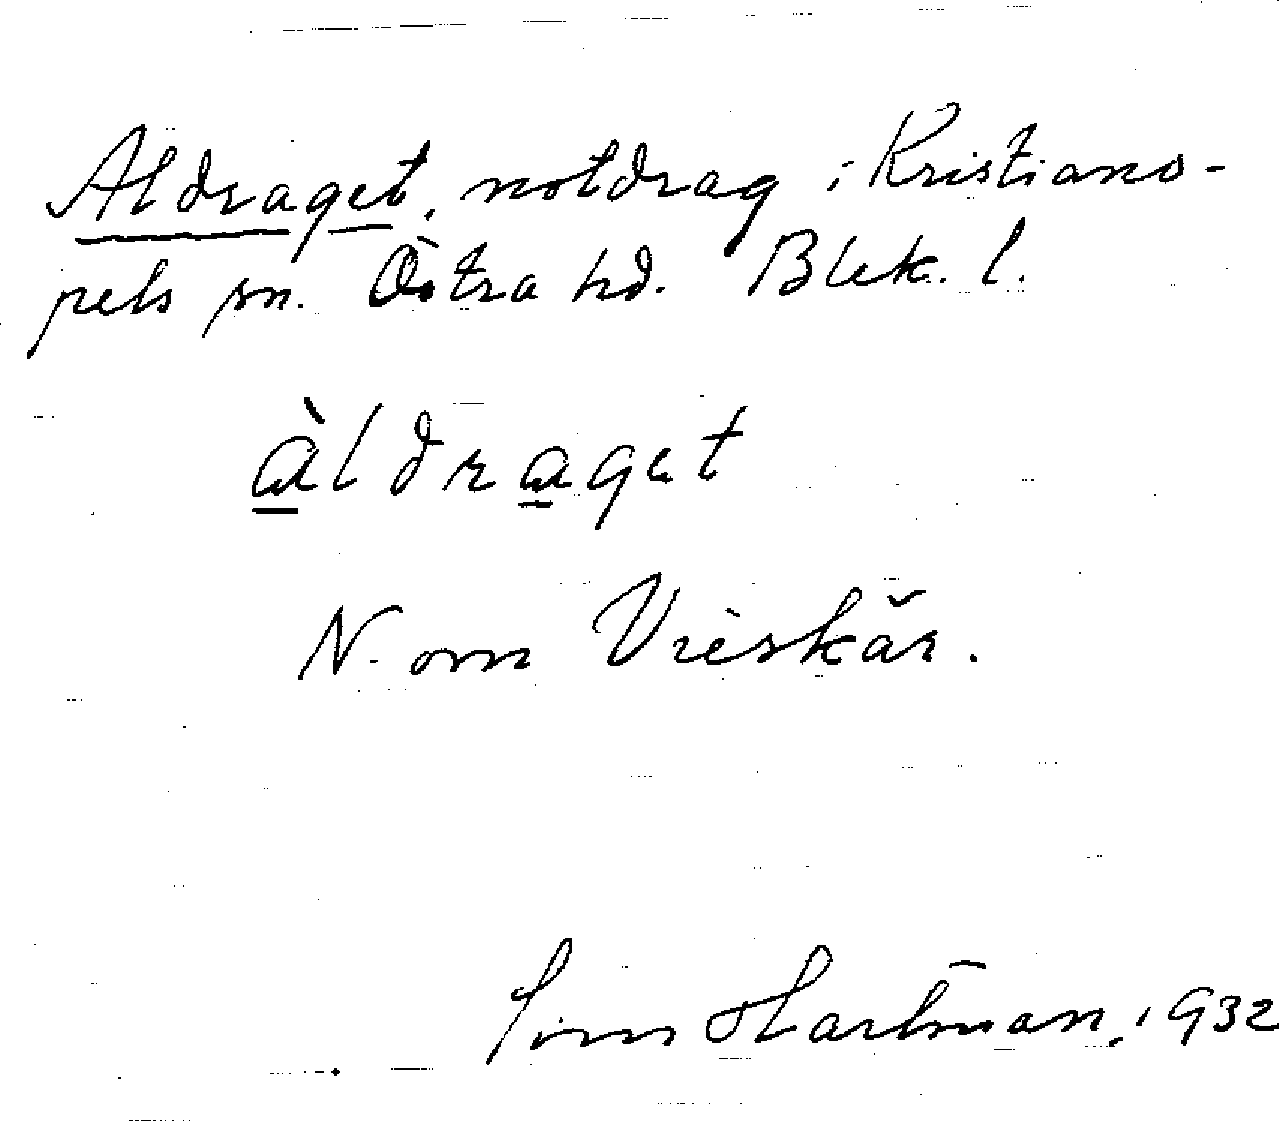 Aldraget, notdrag i Kristiano-
pels sn. Östra hd. Blek. l.
àldraget
N. om Vieskär.
Hartman, 1932